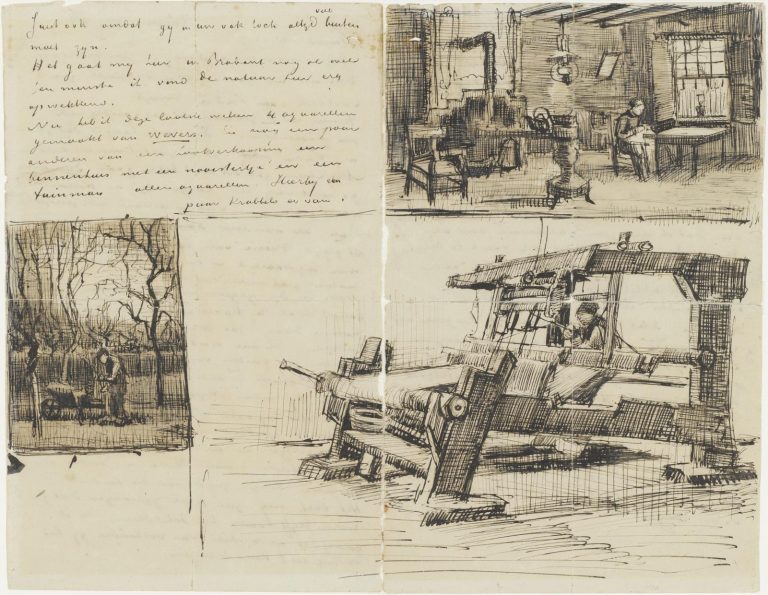 Juist ook omdat gy ook toch altyd veel buiten
moet zyn.
Het gaat my hier in Brabant nog al wel
ten minste ik vond de natuur hier erg
opwekkend.
Nu heb ik deze laatste weken 4 aquarellen
gemaakt van wevers. En nog een paar
anderen van een houtverkooping een
binnenhuis met een naaistertje en een
tuinman allen aquarellen Hierby een
paar Krabbels er van.